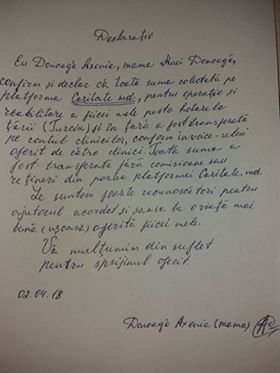 Declarație
Eu Donoagă Axenia, mama Anei Donoagă,
confirm și declar că toate suma colectată pe
platforma Caritate.md, pentru operație și
reabilitare a fiicei mele peste hotarele
țării (Turcia) și în țară a fost transferată
pe contul clinicilor, conform invoice-ului
oferit de către clinici. Toată suma a
fost transferată fără comisioane sau
rețineri din partea platformei Caritate.md.
Le suntem foarte recunoscători pentru
ajutorul acordat și șansa la o viață mai
bună (ușoară) oferită fiicei mele.
Vă mulțumim din suflet
pentru sprijinul oferit.
02.04.18
Donoagă Axenia (mama)